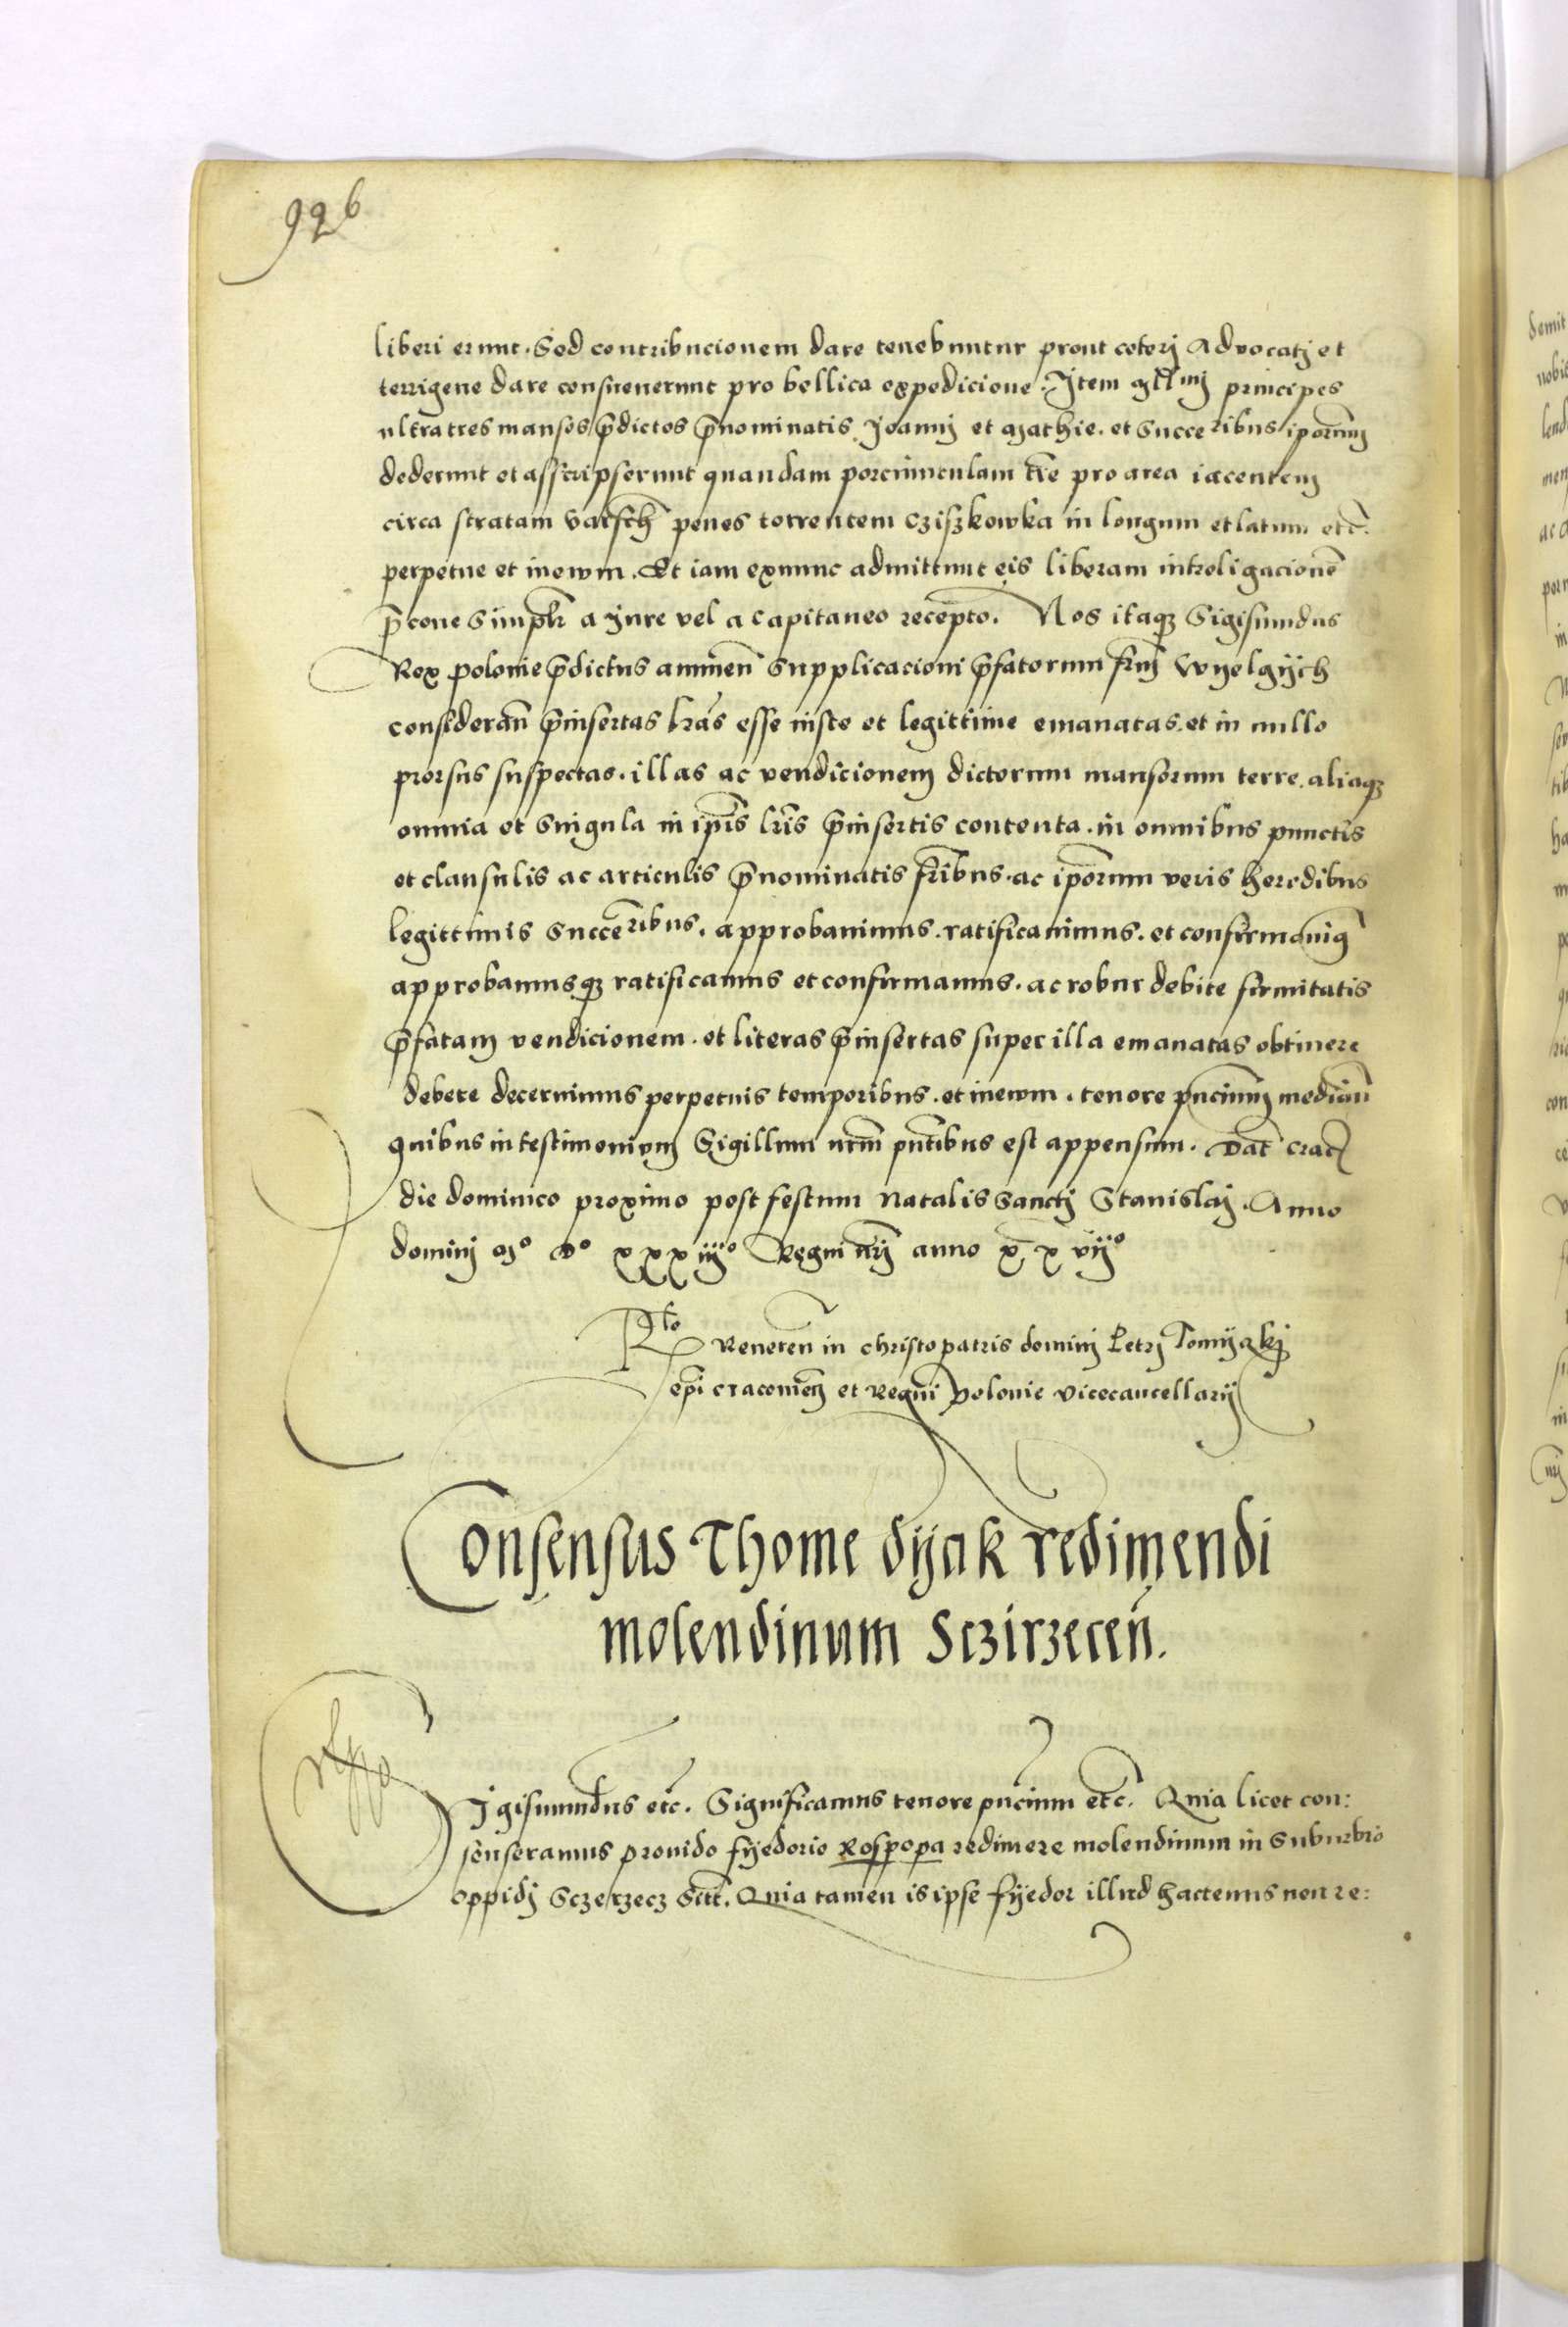 926
liberi erunt. Sed contribucionem dare tenebuntur prout ceterj Advocatj et
terrigene dare consueuerunt pro bellica expedicione. Item principes
ultra tres mansos p̄dictos p̄nominatis Joannj et Mathie. et Succeribus ipōrum
dederunt et asscripserunt quandam porciunculam tr̄e pro area iacentem
circa stratam Varsch̄ penes torrentem Cziszkowka in longum et latum etc̄.
perpetue et inewm. Et iam exnunc admittunt eis liberam intreligacionē
p̄cone Simplr̄ a Jure vel a capitaneo recepto. Nos itaqz Sigismundus
Rex polonie p̄dictus annuen̄ Supplicacioni p̄fatorum fr̄m Wyelgÿch
consideran̄ p̄insertas lrās esse iuste et legittime emanatas. et in nullo
prorsus suspectas. illas ac vendicionem dictorum mansorum terre. aliaqz
omnia et Singula in ip̄is lrīs p̄insertis contenta. in omnibus punctis
et clausulis ac articulis p̄nominatis fr̄ibus. ac ipōrum veris heredibus
legittimis Succēribus. approbauimus. ratificauimus. et confirmauimꝰ
approbamusqz ratificamus et confirmamus. ac robur debite firmitatis
p̄fatam vendicionem. et literas p̄insertas super illa emanatas obtinere
debere decernimus perpetuis temporibus. et inewm. tenore pn̄cium median̄
Quibus in testimonium Sigillum nr̄m pn̄tibus est appensum. Dat̄ Crac̄
die dominico proximo post festum Natalis Sanctj Stanislaj. Anno
dominj Mº Dº xxxiijº Regni nr̄j anno xxvijº
Rlº Reueren̄ in christo patris dominj Petrj Tomÿczkj
ep̄i cracouien̄ et Regni polonie vicecancellarij
Consensus Thome dÿak redimendi
molendinum Sczirzecen̄.
Sigismundus etc̄. Significamus tenore pn̄cium etc̄. Quia licet con:
senseramus prouido fÿedorio Rospopa redimere molendinum in Suburbio
oppidj Sczerzecz Quia tamen is ipse fÿedor illud hactenus non re: